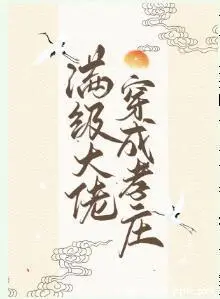 满级大佬
穿成孝庄